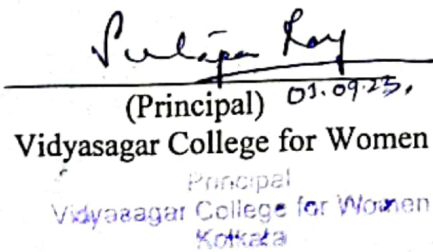 Roy
(Principal) 01.09.23.
Vidyasagar College for Women
Principal
Vidyasagar College for Women
Kolkata